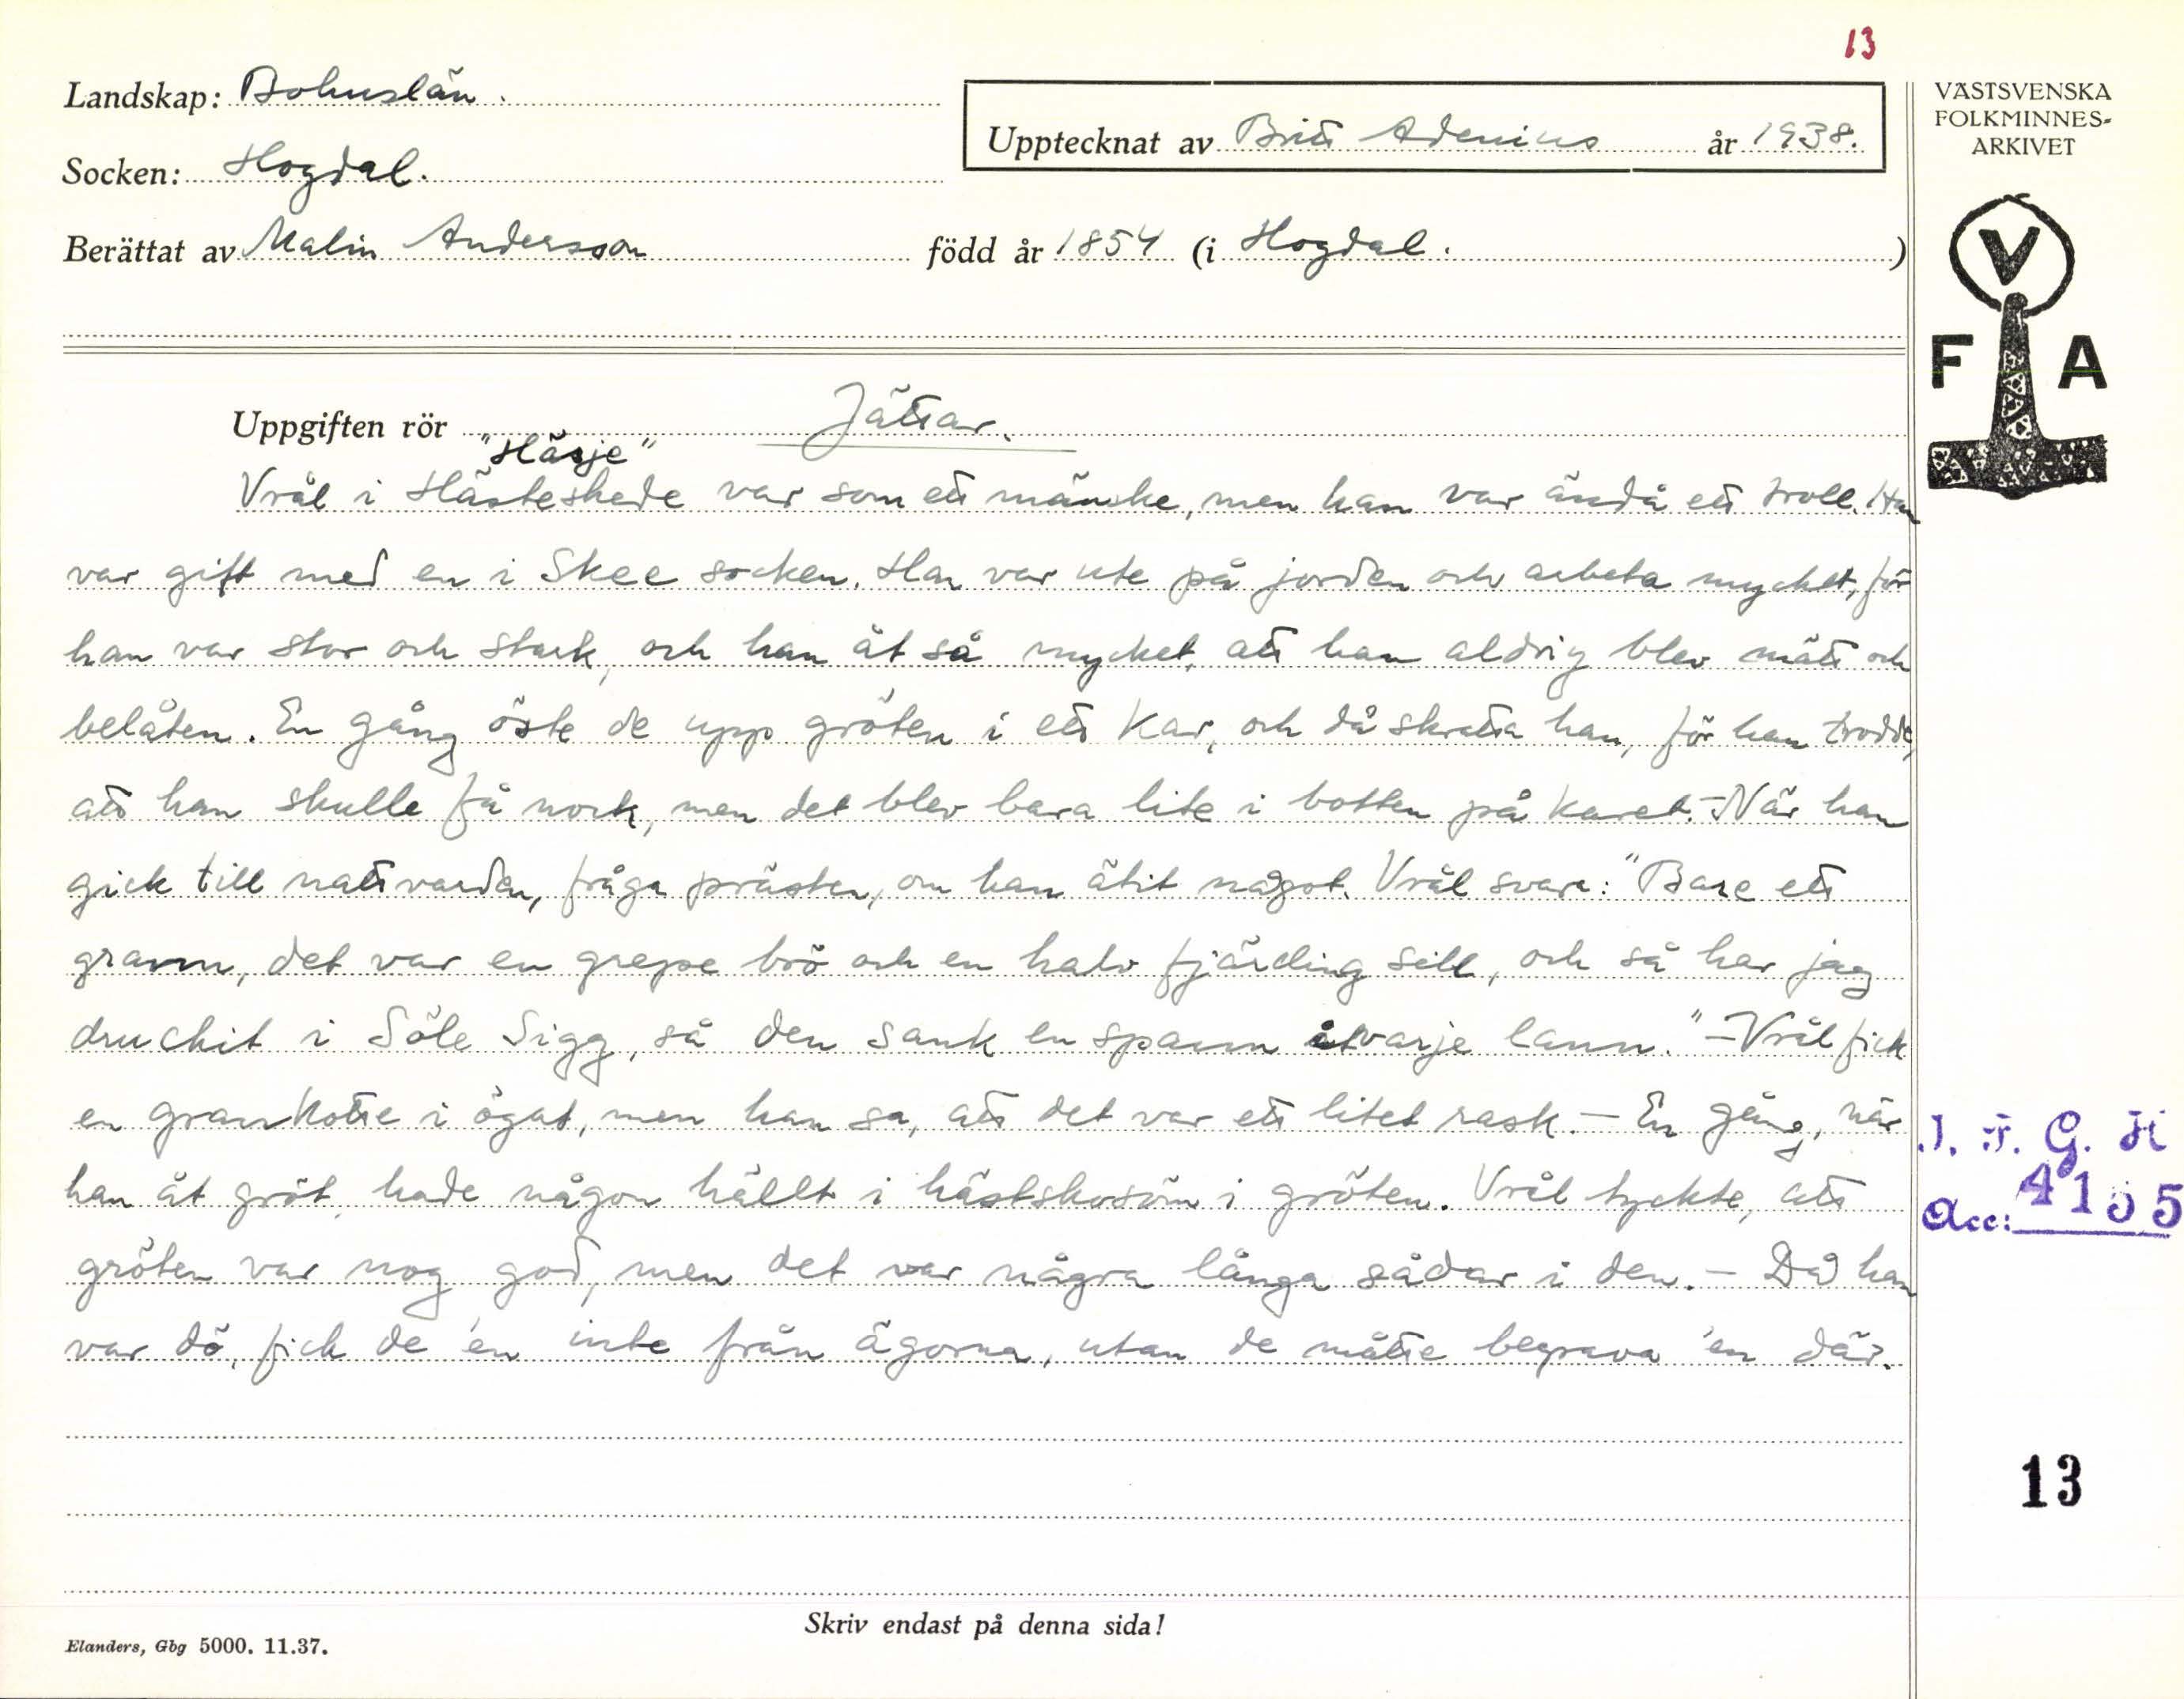 13
Landskap: Bohuslän.
Upptecknat av Britt Adenius år 1938.
Socken: Hogdal.
Berättat av Malin Andersson född år 1854 (i Hogdal.)
VÄSTSVENSKA
FOLKMINNES-
ARKIVET
V
F A
Uppgiften rör Jättar.
"Häsje"
Vrål i Hästeskede var som ett mänske, men han var ändå ett troll. Han
var gift med en i Skee socken. Han var ute på jorden och arbeta mycket, för
han var stor och stark, och han åt så mycket, att han aldrig blev mätt och
belåten. En gång öste de upp gröten i ett kar, och då skratta han, för han trodde,
att han skulle få nock, men det blev bara lite i botten på karet. – När han
gick till nattvarden, fråga prästen, om han ätit något. Vrål svara: "Bare ett
grann, det var en grepe brö och en halv fjärding sill, och så har jag
druckit i Söle Sigg, så den sank en spann åt varje lann." – Vrål fick
en grankotte i ögat, men han sa, att det var ett litet rask. – En gång, när
han åt gröt, hade någon hällt i hästskosöm i gröten. Vrål tyckte, att
gröten var nog god, men det var några långa sådar i den. – Då han
var dö, fick de 'en inte från ägorna, utan de måtte begrava 'en där.
I. F. G. H
Acc: 4155
13
Skriv endast på denna sida!
Elanders, Gbg 5000. 11.37.